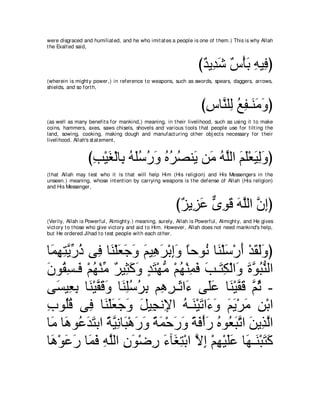 were disgraced and humiliated, and he who imitates a people is one of them.) This is why Allah
the Exalted said,
(فِيهِ بَأْسٌ شَدِيدٌ)
(wherein is mighty power,) in reference to weapons, such as swords, spears, daggers, arrows,
shields, and so forth,
(وَمَنَـفِعُ لِلنَّاسِ)
(as well as many benefits for mankind,) meaning, in their livelihood, such as using it to make
coins, hammers, axes, saws chisels, shovels and various tools that people use for tilting the
land, sowing, cooking, making dough and manufacturing other objects necessary for their
livelihood. Allah's statement,
(وَلِيَعْلَمَ اللَّهُ مَن يَنصُرُهُ وَرُسُلَهُ بِالْغَيْبِ)
(that Allah may test who it is that will help Him (His religion) and His Messengers in the
unseen.) meaning, whose intention by carrying weapons is the defense of Allah (His religion)
and His Messenger,
(إِنَّ اللَّهَ قَوِىٌّ عَزِيزٌ)
(Verily, Allah is Powerful, Almighty.) meaning, surely, Allah is Powerful, Almighty, and He gives
victory to those who give victory and aid to Him. However, Allah does not need mankind's help,
but He ordered Jihad to test people with each other.
(وَلَقَدْ أَرْسَلْنَا نُوحاً وَإِبْرَهِيمَ وَجَعَلْنَا فِى ذُرِّيَّتِهِمَا
النُّبُوَّةَ وَالْكِتَـبَ فَمِنْهُمْ مُّهْتَدٍ وَكَثِيرٌ مِّنْهُمْ فَـسِقُونَ
- ثُمَّ قَفَّيْنَا عَلَى ءَاثَـرِهِم بِرُسُلِنَا وَقَفَّيْنَا بِعِيسَى
ابْنِ مَرْيَمَ وَءَاتَيْنَـهُ الإِنجِيلَ وَجَعَلْنَا فِى قُلُوبِ
الَّذِينَ اتَّبَعُوهُ رَأْفَةً وَرَحْمَةً وَرَهْبَانِيَّةً ابْتَدَعُوهَا مَا
كَتَبْنَـهَا عَلَيْهِمْ إِلاَّ ابْتِغَآءَ رِضْوَنِ اللَّهِ فَمَا رَعَوْهَا